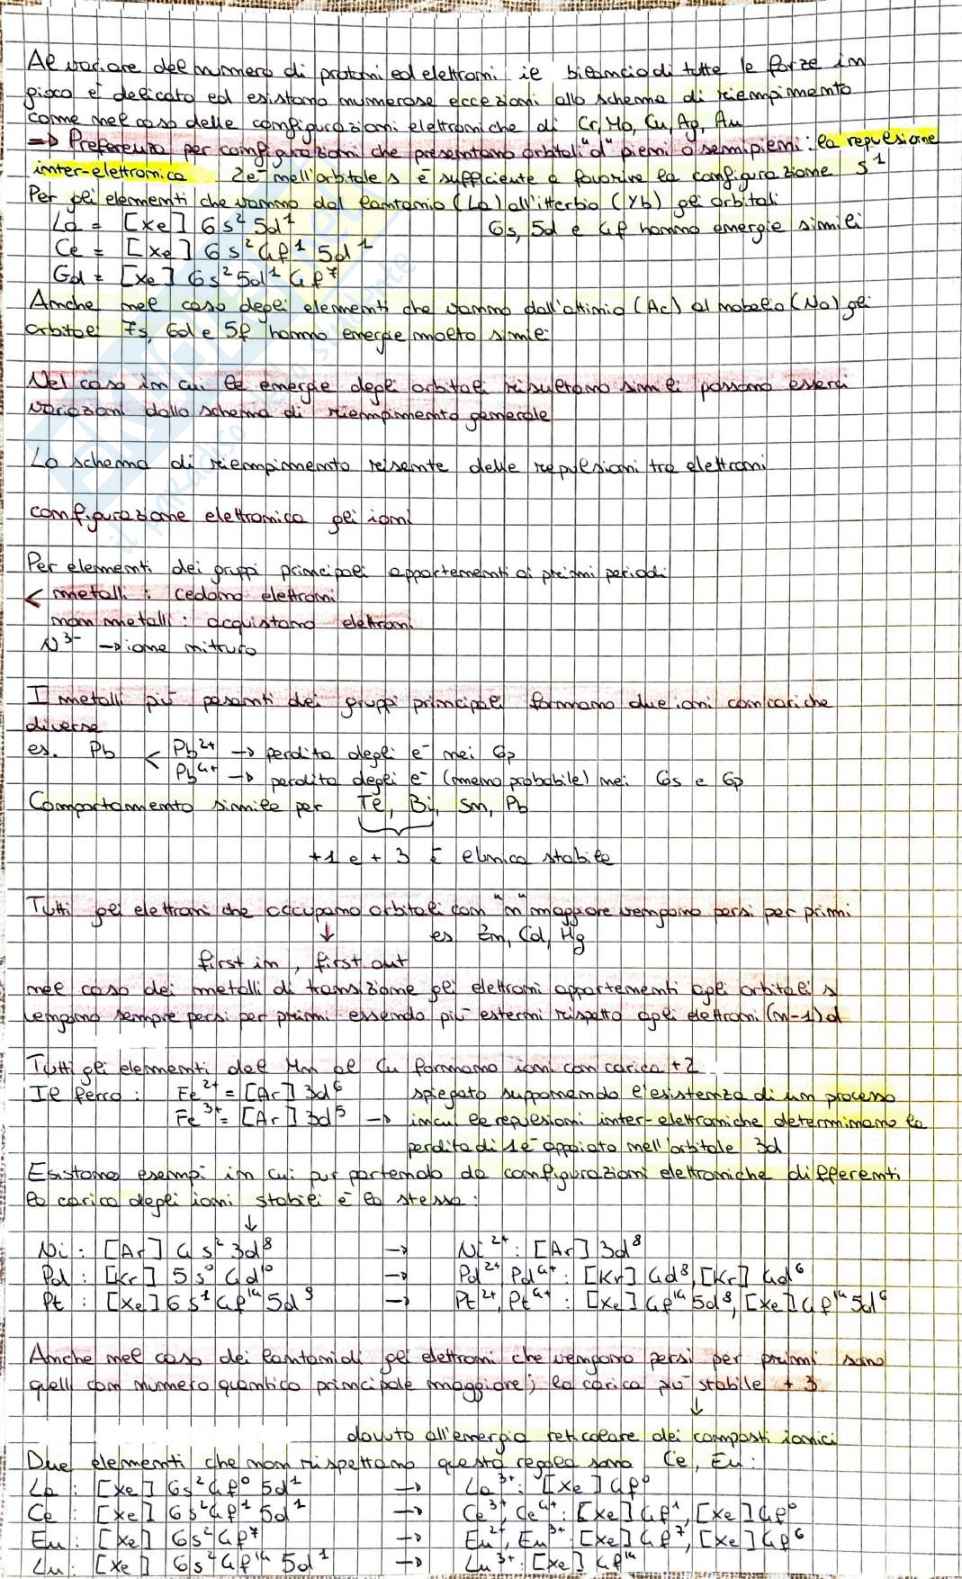 Al variare del numero di protoni ed elettroni il bilancio di tutte le forze in
gioco è delicato ed esistono numerose eccezioni allo schema di riempimento
come nel caso delle configurazioni elettroniche di Cr, Mo, Cu, Ag, Au
=> Preferenza per configurazioni che presentano orbitali "d" pieni o semipieni: la repulsione
inter-elettronica 2e⁻ nell'orbitale s è sufficiente a favorire la configurazione s¹
Per gli elementi che vanno dal lantanio (La) all'itterbio (Yb) gli orbitali
La = [Xe] 6s² 5d¹ 6s, 5d e 4f hanno energie simili
Ce = [Xe] 6s² 4f¹ 5d¹
Gd = [Xe] 6s² 5d¹ 4f⁷
Anche nel caso degli elementi che vanno dall'attinio (Ac) al nobelio (No) gli
orbitali 7s, 6d e 5f hanno energie molto simili
Nel caso in cui le energie degli orbitali risultano simili possono esserci
variazioni dallo schema di riempimento generale
Lo schema di riempimento risente delle repulsioni tra elettroni
configurazione elettronica gli ioni
Per elementi dei gruppi principali appartenenti ai primi periodi
< metalli: cedono elettroni
non metalli: acquistano elettroni
N³⁻ -> ione nitruro
I metalli più pesanti dei gruppi principali formano due ioni con cariche
diverse
es. Pb < Pb²⁺ -> perdita degli e⁻ nei 6p
Pb⁴⁺ -> perdita degli e⁻ (meno probabile) nei 6s e 6p
Comportamento simile per Te, Bi, Sn, Pb
+1 e +3 È l'unica stabile
Tutti gli elettroni che occupano orbitali con "n" maggiore vengono persi per primi
↓ es Zn, Cd, Hg
first in, first out
nel caso dei metalli di transizione gli elettroni appartenenti agli orbitali s
vengono sempre persi per primi essendo più esterni rispetto agli elettroni (n-1)d
Tutti gli elementi dal Mn al Cu formano ioni con carica +2
Il ferro: Fe²⁺ = [Ar] 3d⁶ spiegato supponendo l'esistenza di un processo
Fe³⁺ = [Ar] 3d⁵ -> in cui le repulsioni inter-elettroniche determinano la
perdita di 1e⁻ appaiato nell'orbitale 3d
Esistono esempi in cui pur partendo da configurazioni elettroniche differenti
la carica degli ioni stabili è la stessa:
↓
Ni: [Ar] 4s² 3d⁸ -> Ni²⁺: [Ar] 3d⁸
Pd: [Kr] 5s⁰ 4d¹⁰ -> Pd²⁺, Pd⁴⁺: [Kr] 4d⁸, [Kr] 4d⁶
Pt: [Xe] 6s¹ 4f¹⁴ 5d⁹ -> Pt²⁺, Pt⁴⁺: [Xe] 4f¹⁴ 5d⁸, [Xe] 4f¹⁴ 5d⁶
Anche nel caso dei lantanidi gli elettroni che vengono persi per primi sono
quelli con numero quantico principale maggiore; la carica più stabile +3
↓
dovuto all'energia reticolare dei composti ionici
Due elementi che non rispettano questa regola sono Ce, Eu:
La: [Xe] 6s² 4f⁰ 5d¹ -> La³⁺: [Xe] 4f⁰
Ce: [Xe] 6s² 4f¹ 5d¹ -> Ce³⁺, Ce⁴⁺: [Xe] 4f¹, [Xe] 4f⁰
Eu: [Xe] 6s² 4f⁷ -> Eu²⁺, Eu³⁺: [Xe] 4f⁷, [Xe] 4f⁶
Lu: [Xe] 6s² 4f¹⁴ 5d¹ -> Lu³⁺: [Xe] 4f¹⁴